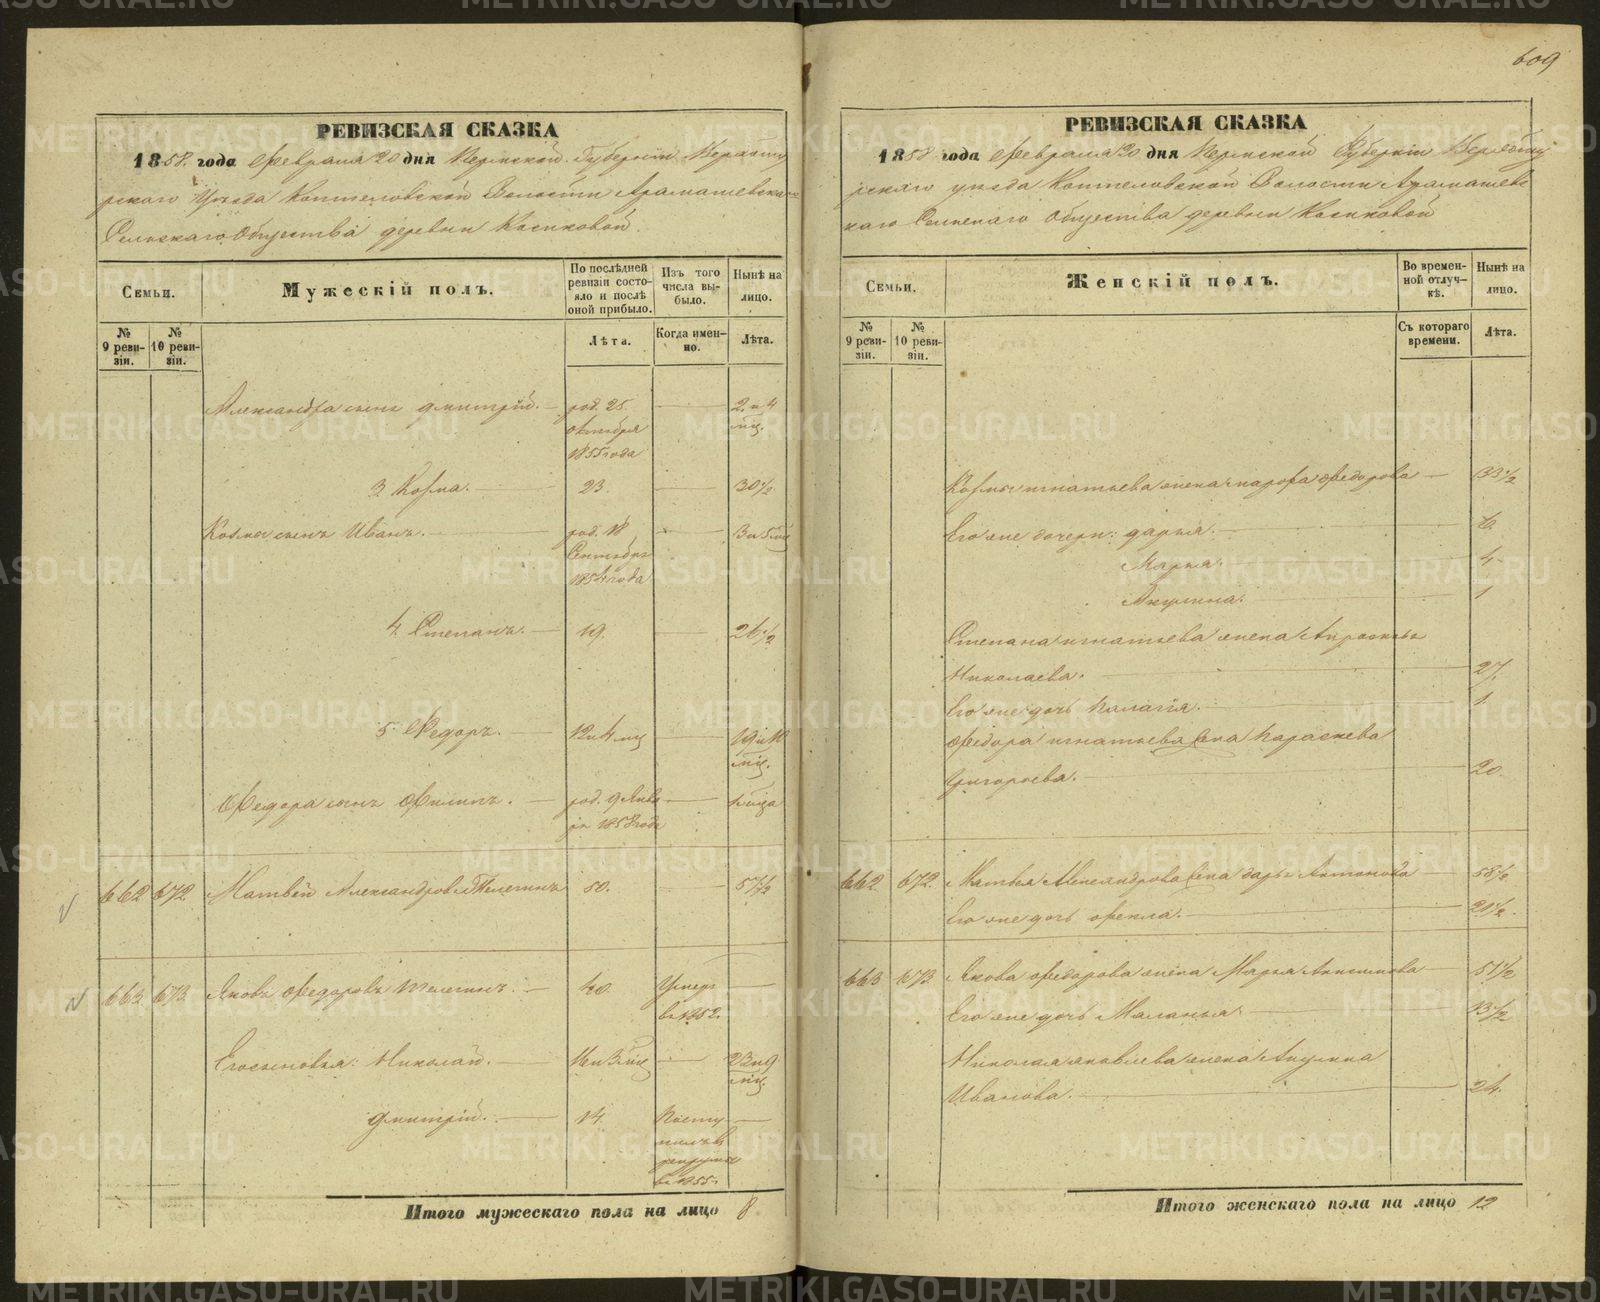 609
РЕВИЗСКАЯ СКАЗКА
1858 года Февраля 20 дня Пермской Губернiи Верхоту
рскаго Уѣзда Коптеловской Волости Арамашевска
Сельскаго Общества деревни Косиковой.
Семьи.
Мужескiй полъ.
По послѣдней ревизiи состояло и послѣ оной прибыло.
Изъ того числа выбыло.
Нынѣ на лицо.
№ 9 ревизiи.
№ 10 ревизiи.
Лѣта.
Когда именно.
Лѣта.
Александра сынъ Дмитрiй. род. 25 октября 1855 года 2. и 4 мц.
3 Козма. 23. 30 1/2
Козмы сынъ Иванъ. род. 18 Сентября 1854 года 3 и 5 мц
4 Степанъ. 19. 26 1/2
5 Федоръ. 12 и 4 мц 19 и 10 мц.
Федора сынъ Филипъ. род. 9 Янва ря 1858 года
662 672 Матвѣй Александровъ Телегинъ 50. 57 1/2
663 673 Яковъ Федоровъ Телегинъ. 40. Умеръ въ 1852.
Его сыновья: Николай. 16 и 3 мц 23 и 9 мц
Дмитрiй. 14. Посту пилъ въ рекруты въ 1855.
Итого мужескаго пола на лицо 8
РЕВИЗСКАЯ СКАЗКА
1858 года Февраля 20 дня Пермской Губернiи Верхоту
рскаго уѣзда Коптеловской Волости Арамашевс
каго Сельскаго Общества деревни Косиковой
Семьи.
Женскiй полъ.
Во временной отлучкѣ.
Нынѣ на лицо.
№ 9 ревизiи.
№ 10 ревизiи.
Съ котораго времени.
Лѣта.
Козмы игнатьева жена марфа федорова 33 1/2
Его же дочери: Дарья. 6.
Марья. 4
Акулина. 1
Степана игнатьева жена
Николаева. 27.
Его же дочь Палагiя. 1
Федора игнатьева жена Параскева
Григорьева. 20.
662 672 Матвѣя Александрова жена Дарья Антонова 58 1/2
Его же дочь Фекла. 21 1/2.
663 673 Якова Федорова жена Марья 51 1/2
Его же дочь Маланья. 13 1/2
Николая яковлева жена Акулина
Иванова. 24.
Итого женскаго пола на лицо 12
METRIKI.GASO-URAL.RU